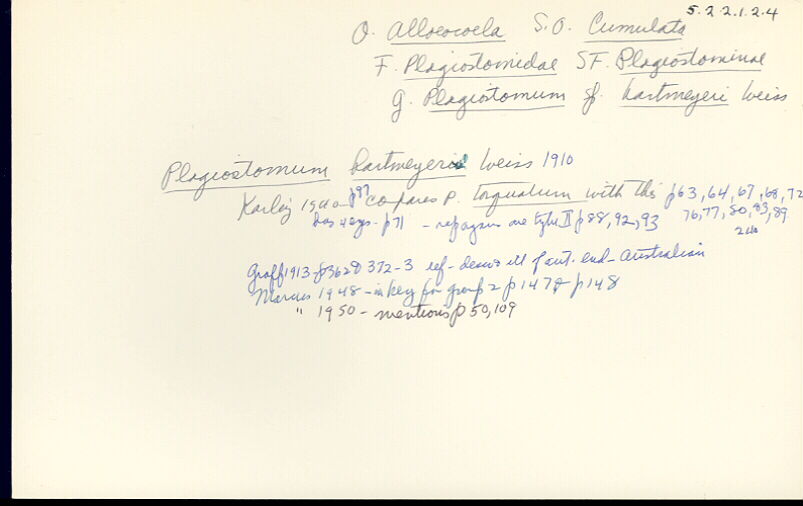 5.2.2.1.2.4
O. Alloeocoela S.O. Cumulata
F. Plagiostomidae SF. Plagiostominae
G. Plagiostomum sp. hartmeyeri Weiss
Plagiostomum hartmeyeri Weiss 1910
Karling 1940- p97 compares P. torquatum with this p63, 64, 67, 68, 72
has 4 eyes - p71 - rep organs are type II p 88, 92, 93 76, 77, 80, 83, 89
240
Graff 1913 - p362 & 372-3 ref - descr & ill of ant. end - Australian
Marcus 1948 - in key for group 2 p 147 & p 148
" 1950 - mentions p 50, 109